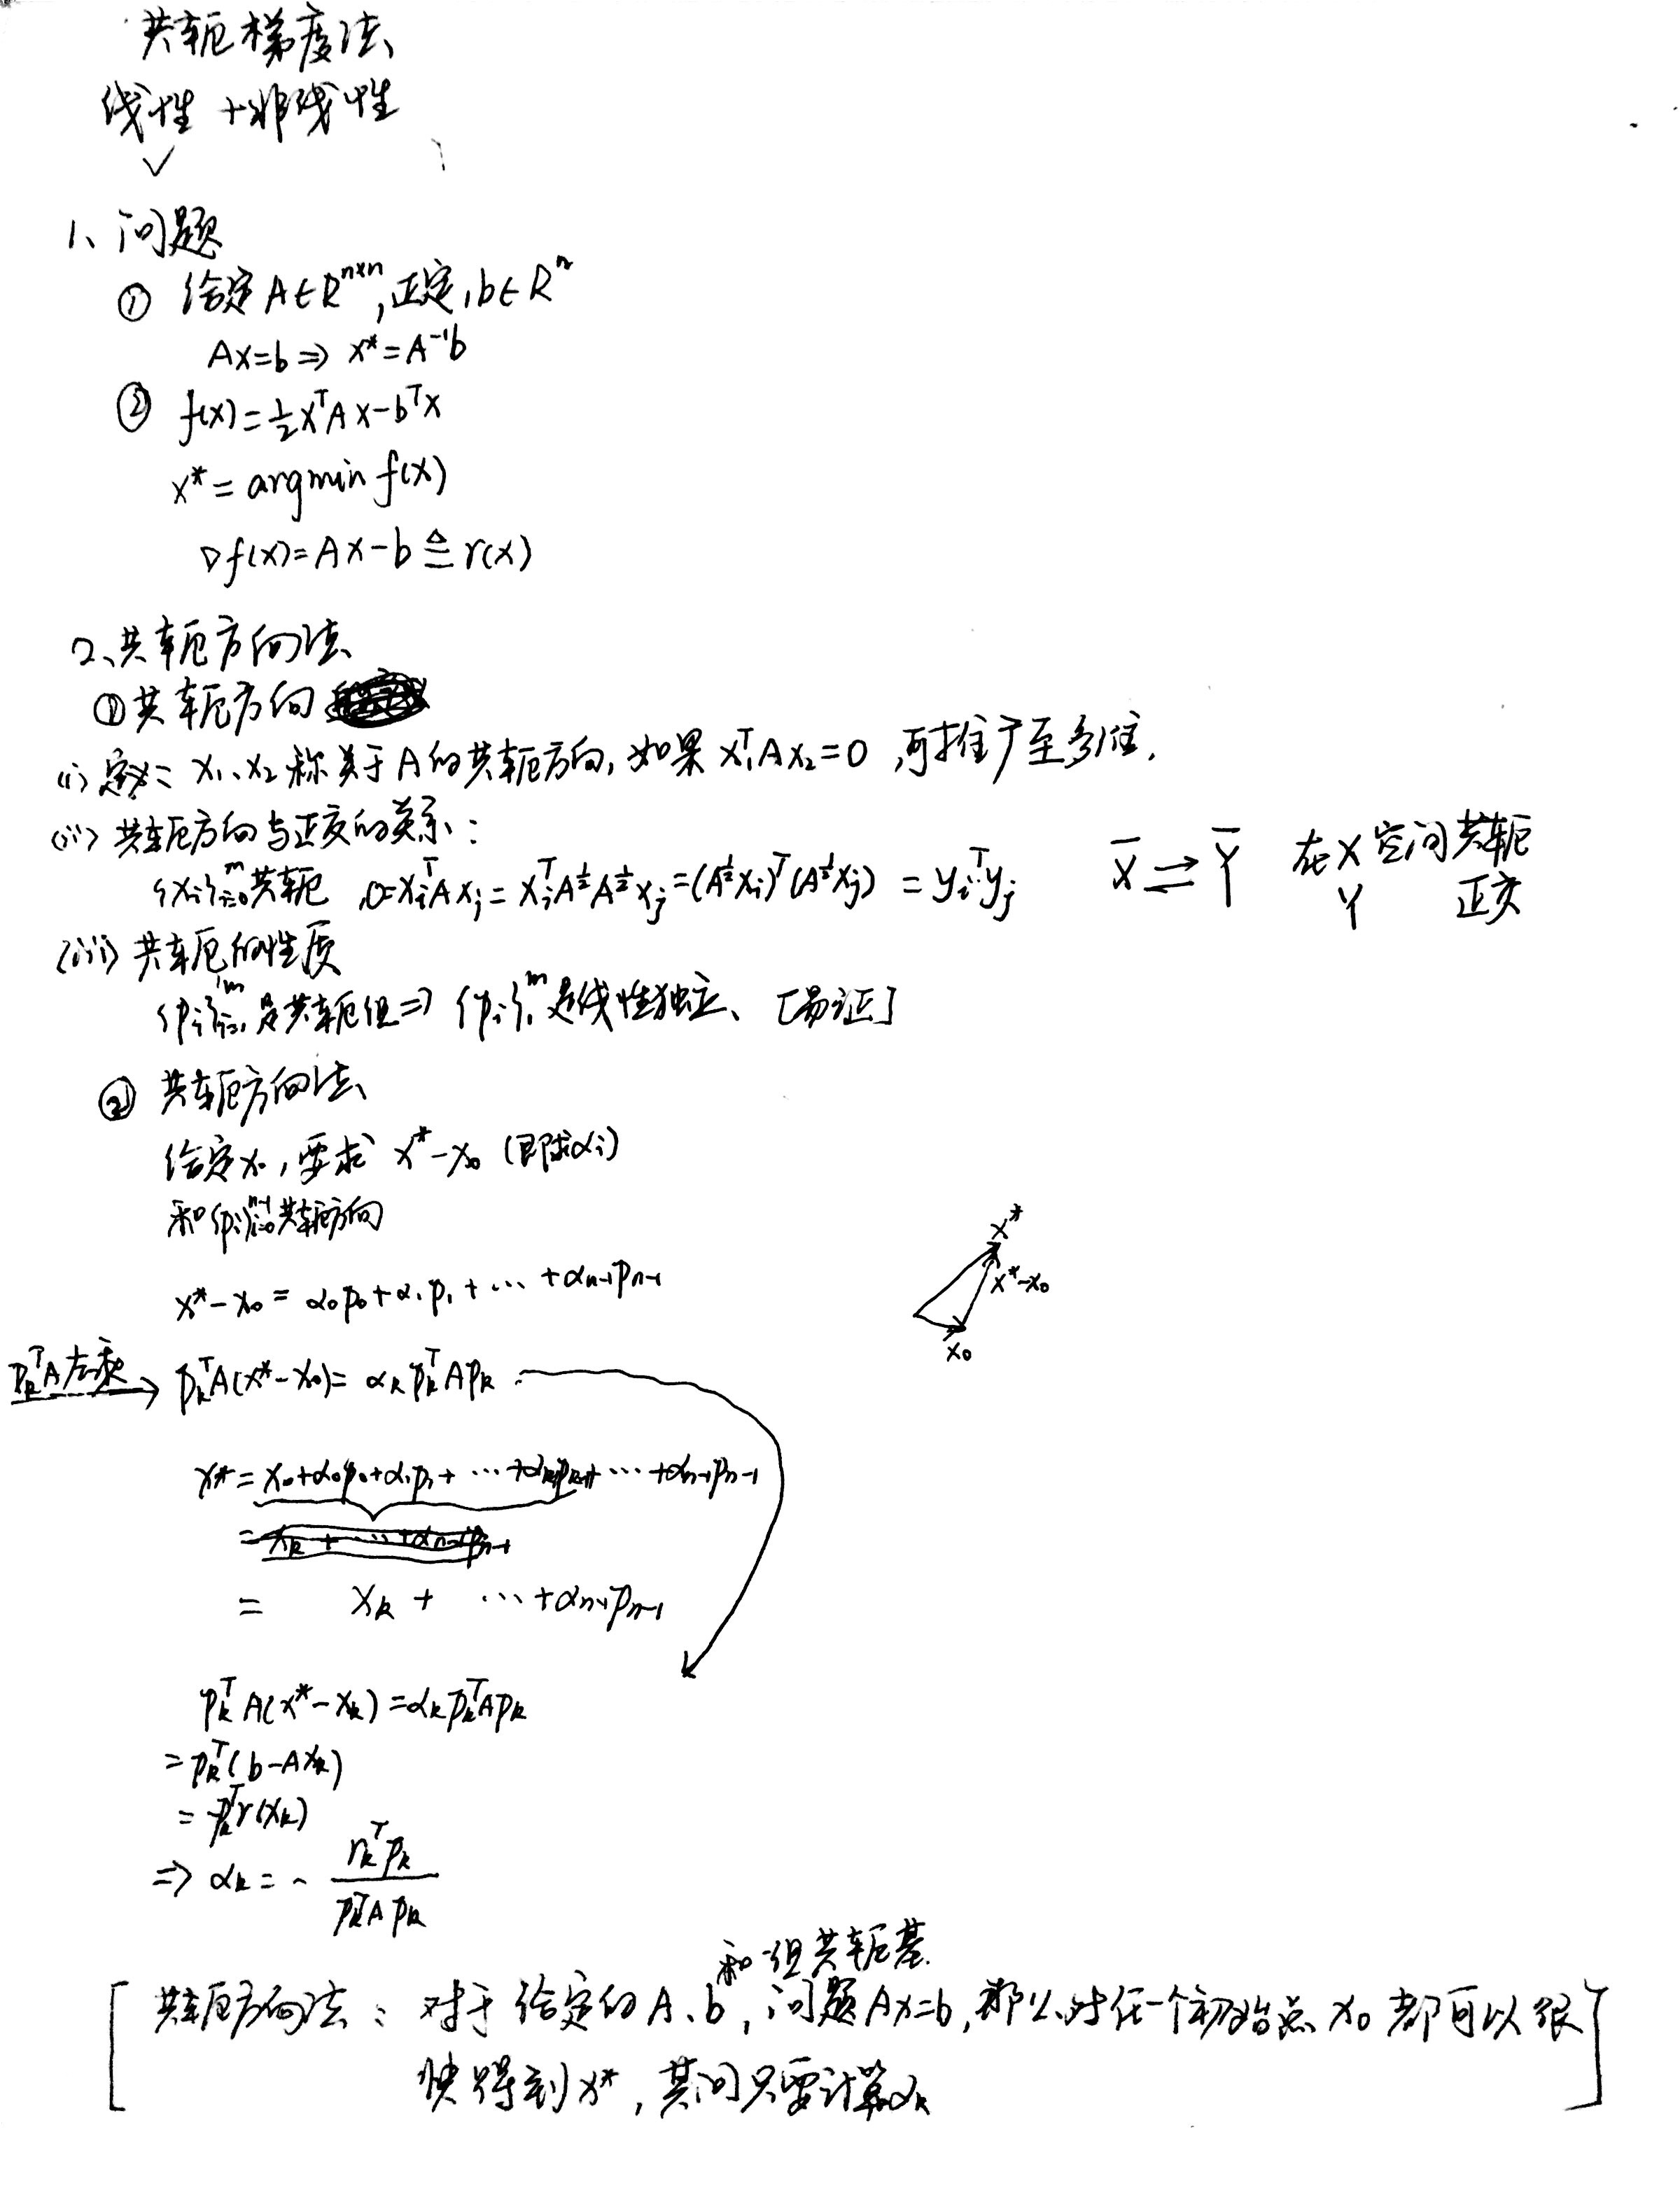 共轭梯度法
线性+非线性
✓
1、问题
① 给定 A∈R^{n×n},正定,b∈R^n
Ax=b ⇒ x*=A^{-1}b
② f(x)=½x^TAx-b^Tx
x*=argmin f(x)
∇f(x)=Ax-b≜r(x)
2、共轭方向法
①共轭方向
(i) 定义: x₁、x₂ 称关于A的共轭方向,如果 x₁^TAx₂=0 ,可推广至多维.
(ii) 共轭方向与正交的关系:
{x_i}_{i=0}^m共轭 ,0=x_i^TAx_j=x_i^TA^{½}A^{½}x_j=(A^{½}x_i)^T(A^{½}x_j) = y_i^Ty_j X̄⇌Ȳ 在X空间共轭
Y 正交
(iii) 共轭的性质
{p_i}_{i=1}^m是共轭组⇒ {p_i}_1^m是线性独立、 [易证]
② 共轭方向法
给定x₀,要求 x*-x₀ (即求α_i)
和{p_i}_{i=0}^{n-1}共轭方向
x*
x*-x₀
x₀
x*-x₀ = α₀p₀+α₁p₁+…+α_{n-1}p_{n-1}
p_k^TA左乘→ p_k^TA(x*-x₀)= α_k p_k^TAp_k
x*=x₀+α₀p₀+α₁p₁+…+α_{k-1}p_{k-1}+…+α_{n-1}p_{n-1}
= x_k+…+α_{n-1}p_{n-1}
= x_k + …+α_{n-1}p_{n-1}
p_k^TA(x*-x_k)=α_kp_k^TAp_k
=p_k^T(b-Ax_k)
=-p_k^Tr(x_k)
⇒ α_k=- \frac{r_k^Tp_k}{p_k^TAp_k}
和一组共轭基.
[共轭方向法: 对于给定的A、b,问题Ax=b,那么对任一个初始点x₀都可以很
快得到x*,其间只要计算α_k]